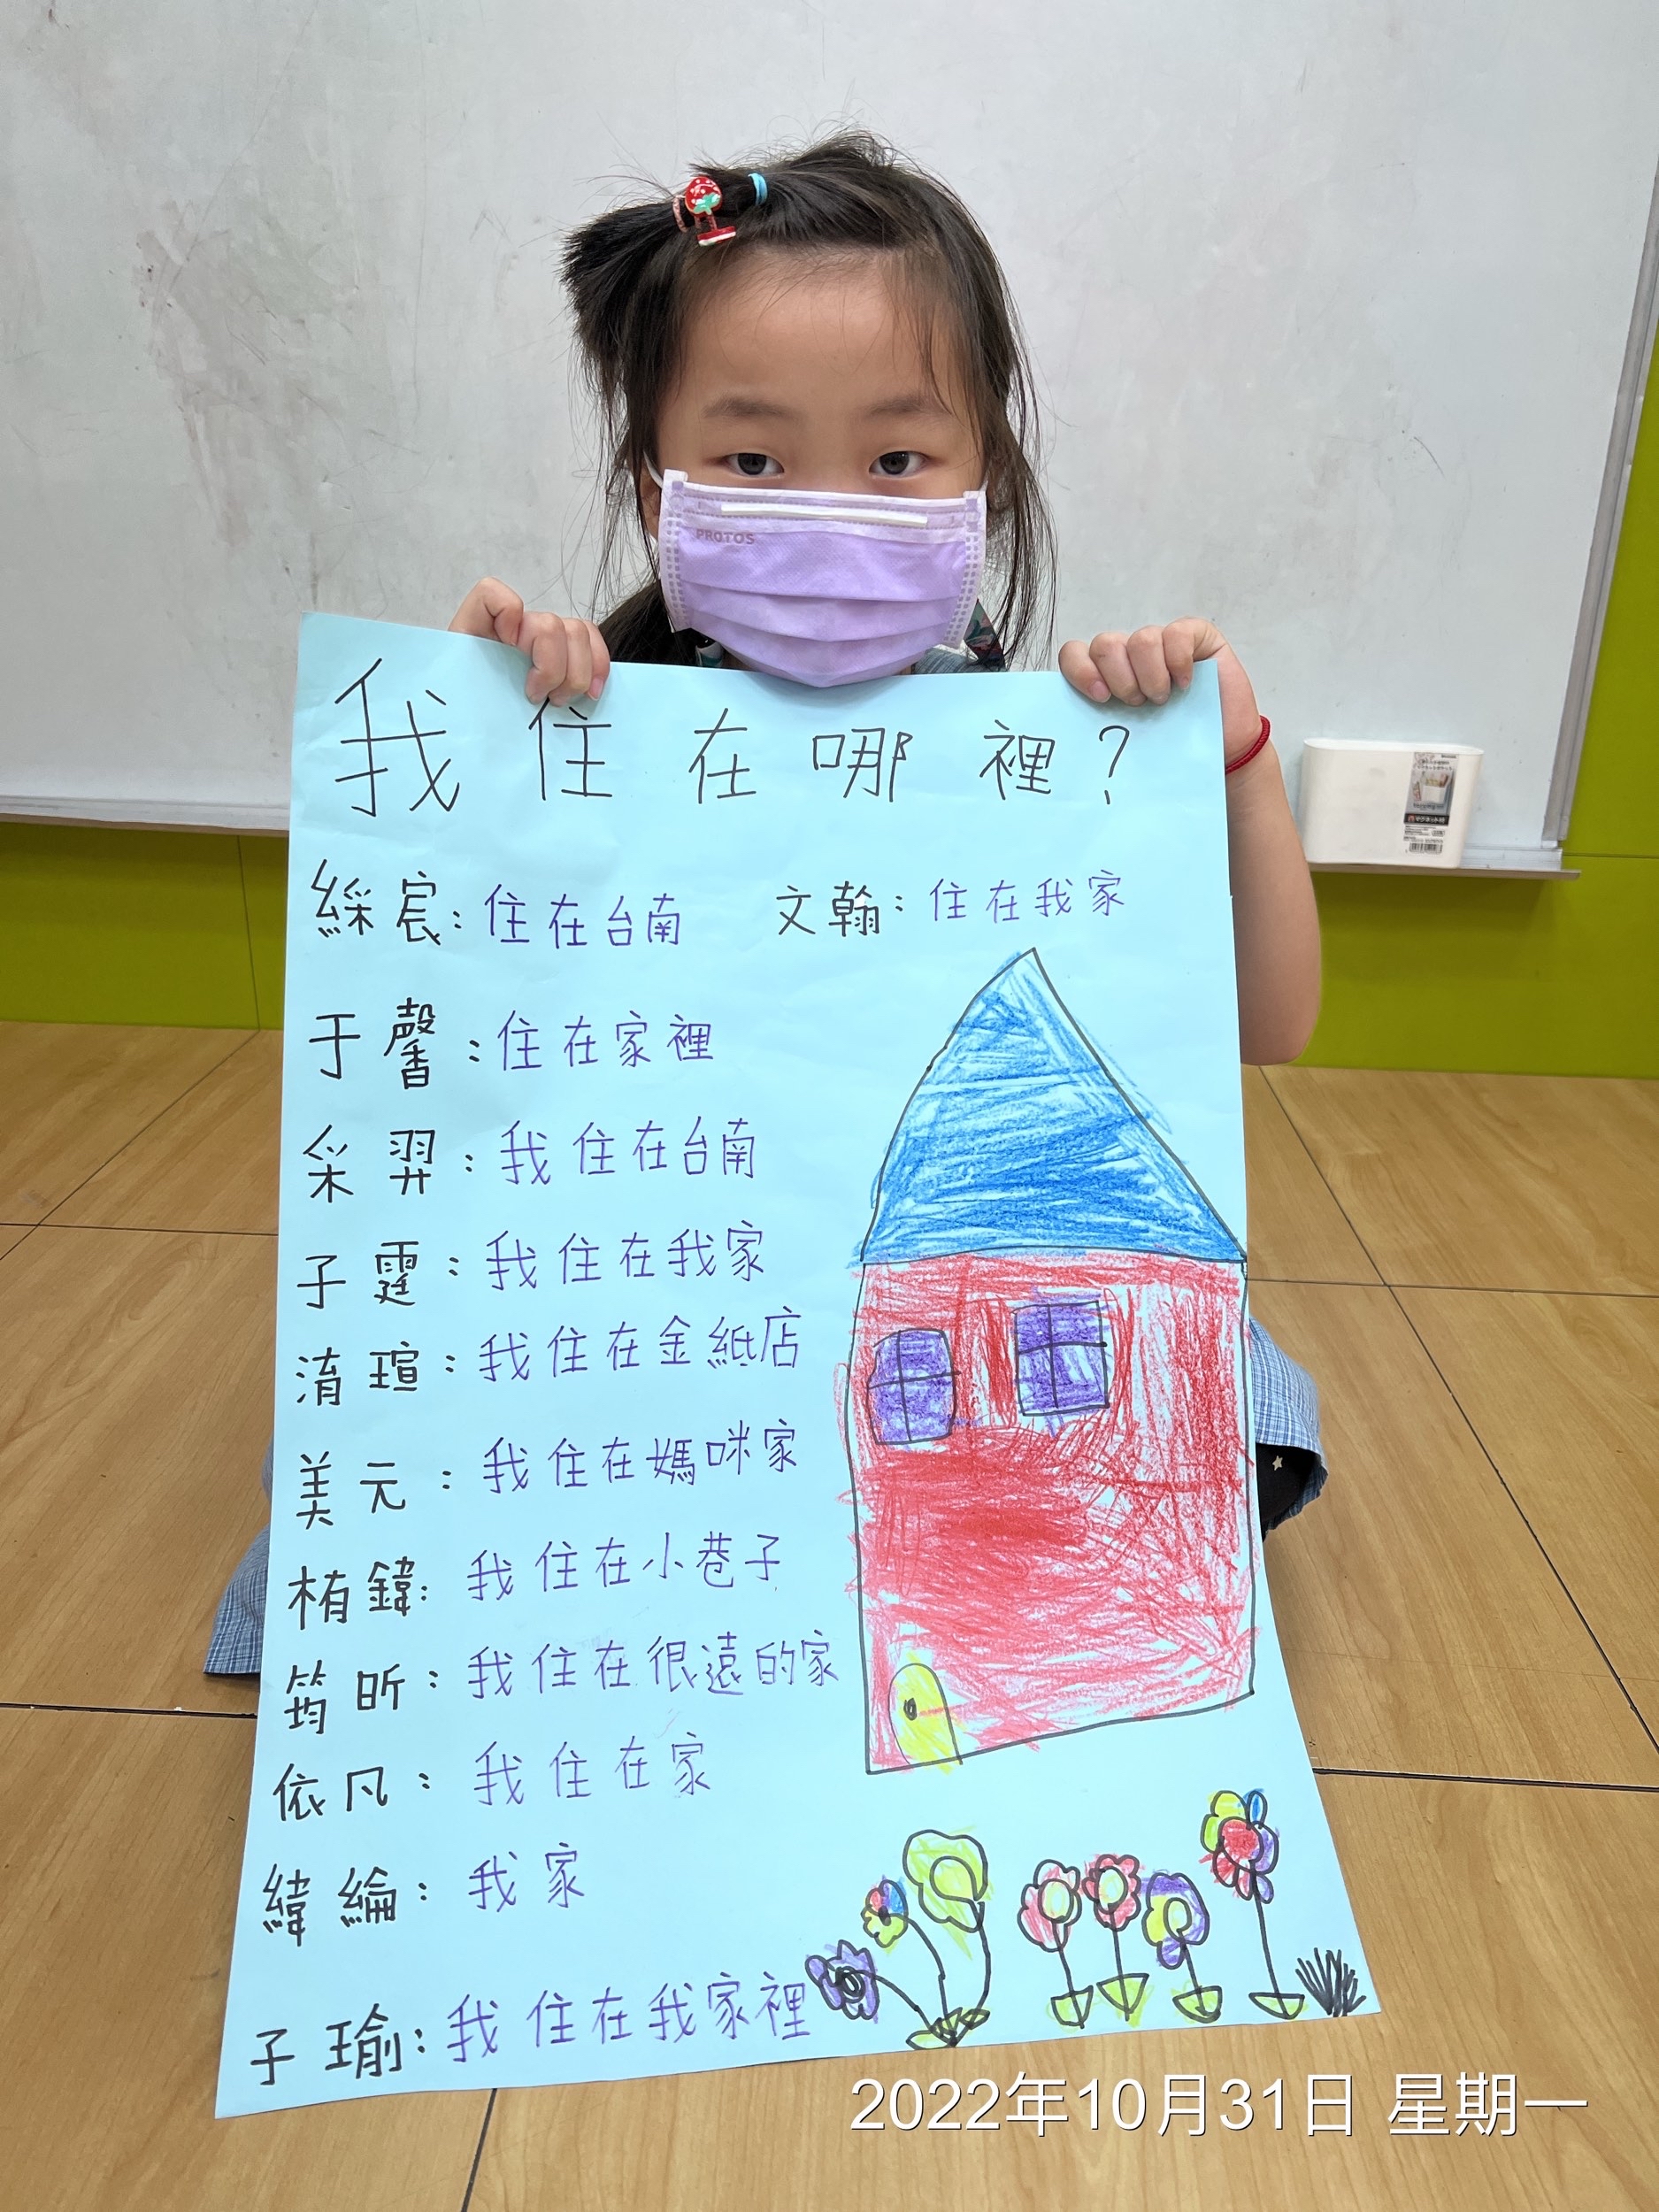 PROTOS
我住在哪裡?
綵宸:住在台南 文翰:住在我家
于馨:住在家裡
采羿:我住在台南
子霆:我住在我家
淯瑄:我住在金紙店
美元:我住在媽咪家
栯鍏:我住在小巷子
筠昕:我住在很遠的家
依凡:我住在家
緯綸:我家
子瑜:我住在我家裡
2022年10月31日 星期一